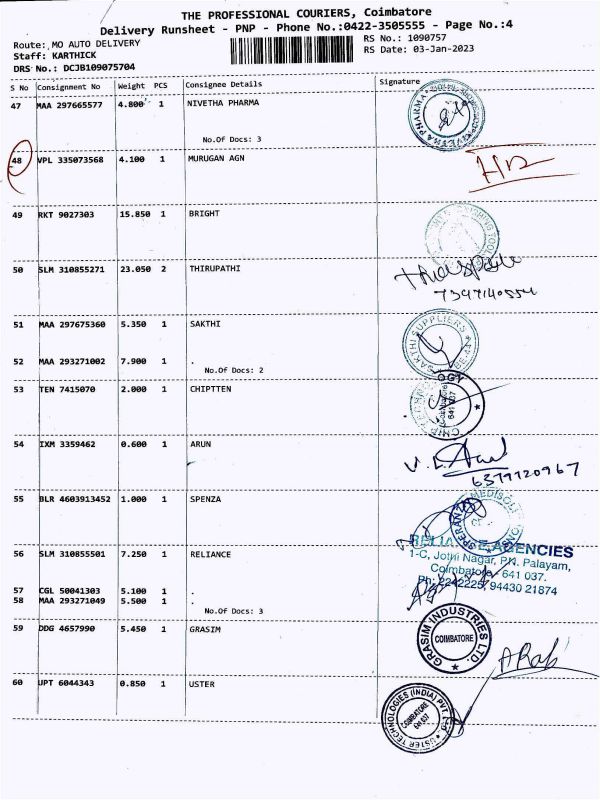 THE PROFESSIONAL COURIERS, Coimbatore
Delivery Runsheet - PNP - Phone No.:0422-3505555 - Page No.:4
Route: MO AUTO DELIVERY
RS No.: 1090757
Staff: KARTHICK
RS Date: 03-Jan-2023
DRS No.: DCJB109075704
S No Consignment No Weight PCS Consignee Details Signature
47 MAA 297665577 4.800 1 NIVETHA PHARMA
No.Of Docs: 3
48 VPL 335073568 4.100 1 MURUGAN AGN
49 RKT 9027303 15.850 1 BRIGHT
50 SLM 310855271 23.050 2 THIRUPATHI
7397140554
51 MAA 297675360 5.350 1 SAKTHI
SAKTHI SUPPLIERS
52 MAA 293271002 7.900 1 .
No.Of Docs: 2
53 TEN 7415070 2.000 1 CHIPTTEN
641 037
54 IXM 3359462 0.600 1 ARUN
6379720967
55 BLR 4603913452 1.000 1 SPENZA
56 SLM 310855501 7.250 1 RELIANCE
RELIANCE AGENCIES
1-C, Jothi Nagar, P.N. Palayam,
Coimbatore - 641 037.
Ph: 2242225, 94430 21874
57 CGL 50041303 5.100 1 .
58 MAA 293271049 5.500 1 .
No.Of Docs: 3
59 DDG 4657990 5.450 1 GRASIM
GRASIM INDUSTRIES LTD.
COIMBATORE
60 JPT 6044343 0.850 1 USTER
USTER TECHNOLOGIES (INDIA) PVT. LTD.
COIMBATORE
641 037